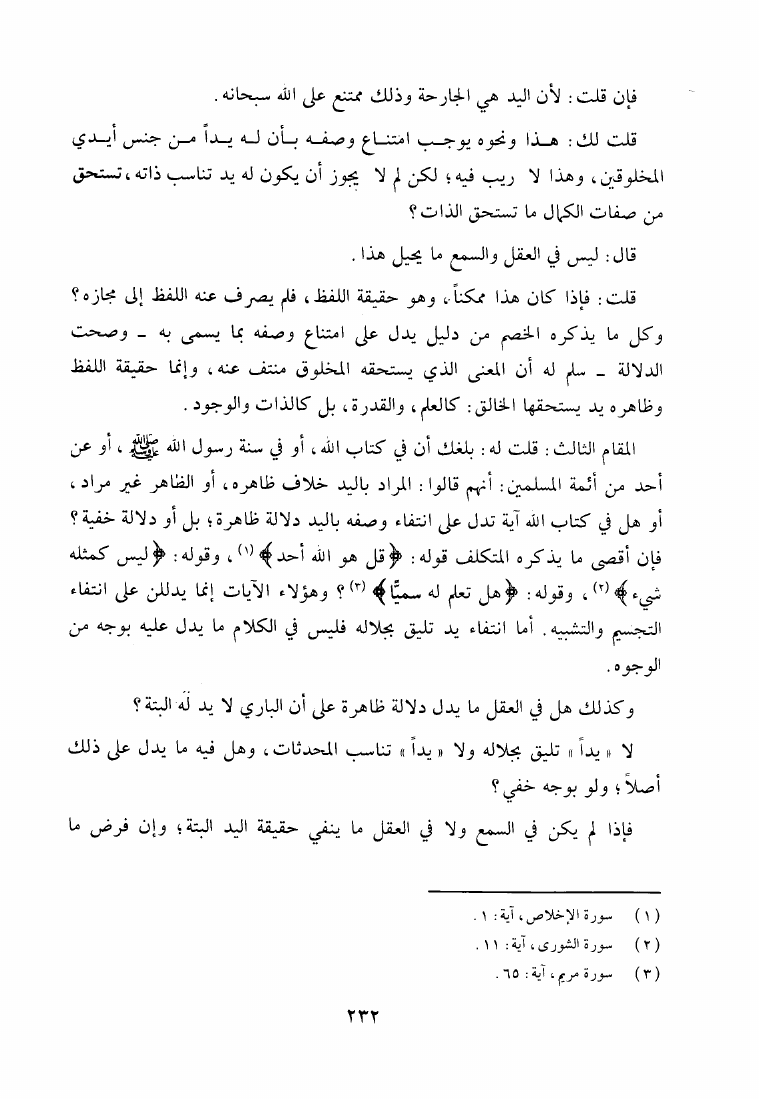 فإن قلت : لأن اليد هي الجارحة وذلك ممتنع على الله سبحانه .
قلت لك : هـذا ونحوه يوجـب امتنـاع وصفـه بـأن لـه يـداً مـن جنس أيـدي
المخلوقين ، وهذا لا ريب فيه ؛ لكن لم لا يجوز أن يكون له يد تناسب ذاته ، تستحق
من صفات الكمال ما تستحق الذات ؟
قال : ليس في العقل والسمع ما يحيل هذا .
قلت : فإذا كان هذا ممكناً ، وهو حقيقة اللفظ ، فلم يصرف عنه اللفظ إلى مجازه ؟
وكل ما يذكره الخصم من دليل يدل على امتناع وصفه بما يسمى به ـ وصحت
الدلالة ـ سلم له أن المعنى الذي يستحقه المخلوق منتف عنه ، وإنما حقيقة اللفظ
وظاهره يد يستحقها الخالق : كالعلم ، والقدرة ، بل كالذات والوجود .
المقام الثالث : قلت له : بلغك أن في كتاب الله ، أو في سنة رسول الله ﷺ ، أو عن
أحد من أئمة المسلمين : أنهم قالوا : المراد باليد خلاف ظاهره ، أو الظاهر غير مراد ،
أو هل في كتاب الله آية تدل على انتفاء وصفه باليد دلالة ظاهرة ؛ بل أو دلالة خفية ؟
فإن أقصى ما يذكره المتكلف قوله : ﴿قل هو الله أحد﴾(١) ، وقوله : ﴿ليس كمثله
شيء﴾(٢) ، وقوله : ﴿هل تعلم له سميًّا﴾(٣) ؟ وهؤلاء الآيات إنما يدللن على انتفاء
التجسيم والتشبيه . أما انتفاء يد تليق بجلاله فليس في الكلام ما يدل عليه بوجه من
الوجوه .
وكذلك هل في العقل ما يدل دلالة ظاهرة على أن الباري لا يد لَه البتة ؟
لا « يداً » تليق بجلاله ولا « يداً » تناسب المحدثات ، وهل فيه ما يدل على ذلك
أصلاً ؛ ولو بوجه خفي ؟
فإذا لم يكن في السمع ولا في العقل ما ينفي حقيقة اليد البتة ؛ وإن فرض ما
(١) سورة الإخلاص ، آية : ١ .
(٢) سورة الشورى ، آية : ١١ .
(٣) سورة مريم ، آية : ٦٥ .
٢٣٢